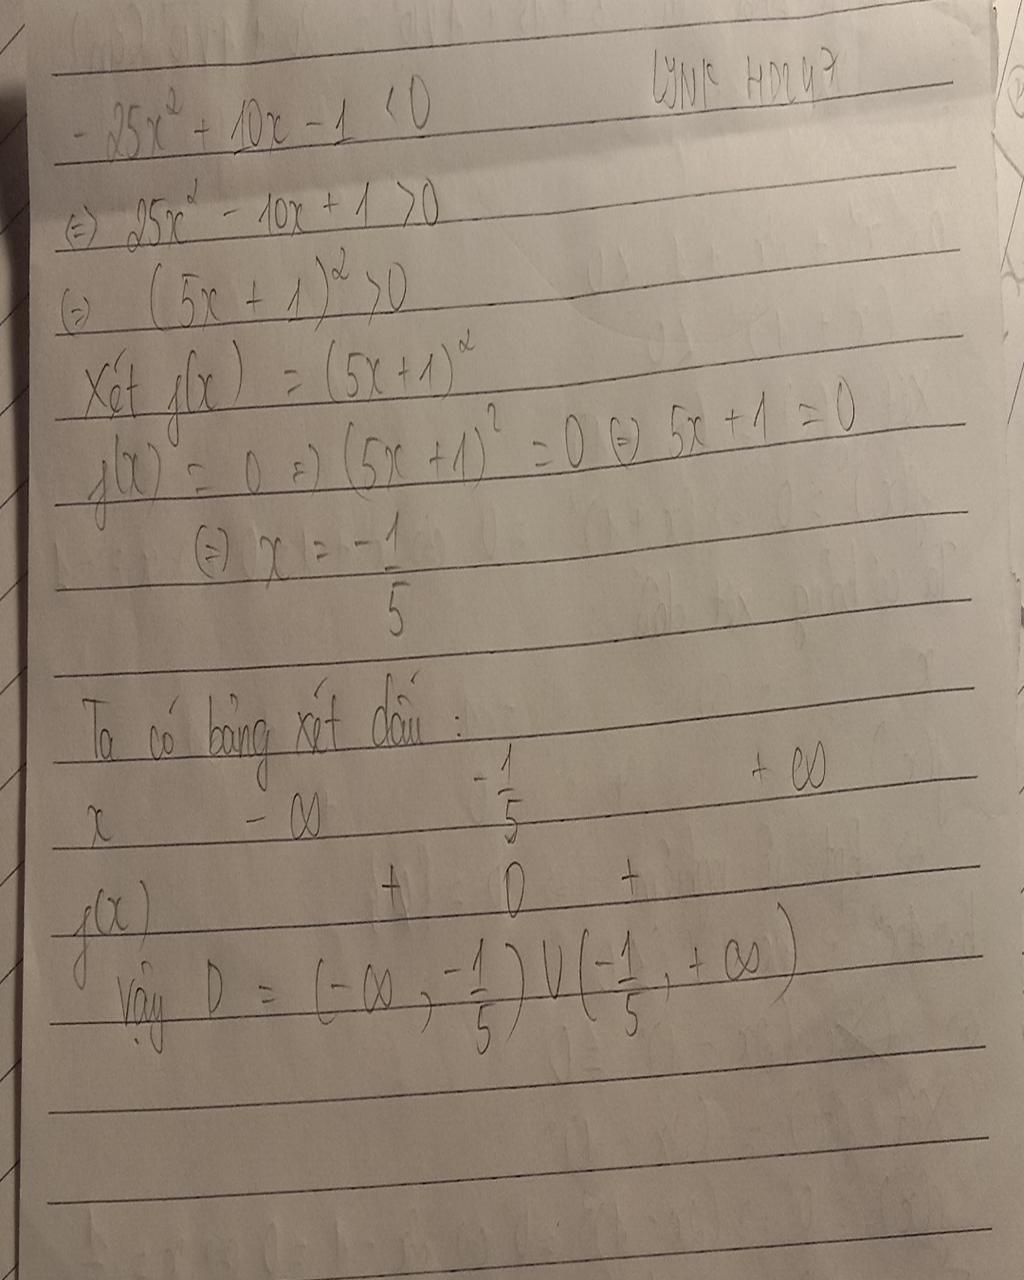 LYNK HDC47
-25x² + 10x - 1 < 0
⇔ 25x² - 10x + 1 > 0
⇔ (5x + 1)² > 0
Xét f(x) = (5x + 1)²
f(x) = 0 ⇒ (5x + 1)² = 0 ⇔ 5x + 1 = 0
⇔ x = -1/5
Ta có bảng xét dấu :
x -∞ -1/5 +∞
f(x) + 0 +
Vậy D = (-∞, -1/5) U (-1/5, +∞)